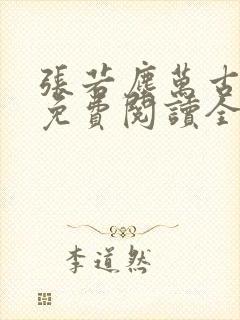 張若塵萬古
免費閱讀全
李道然